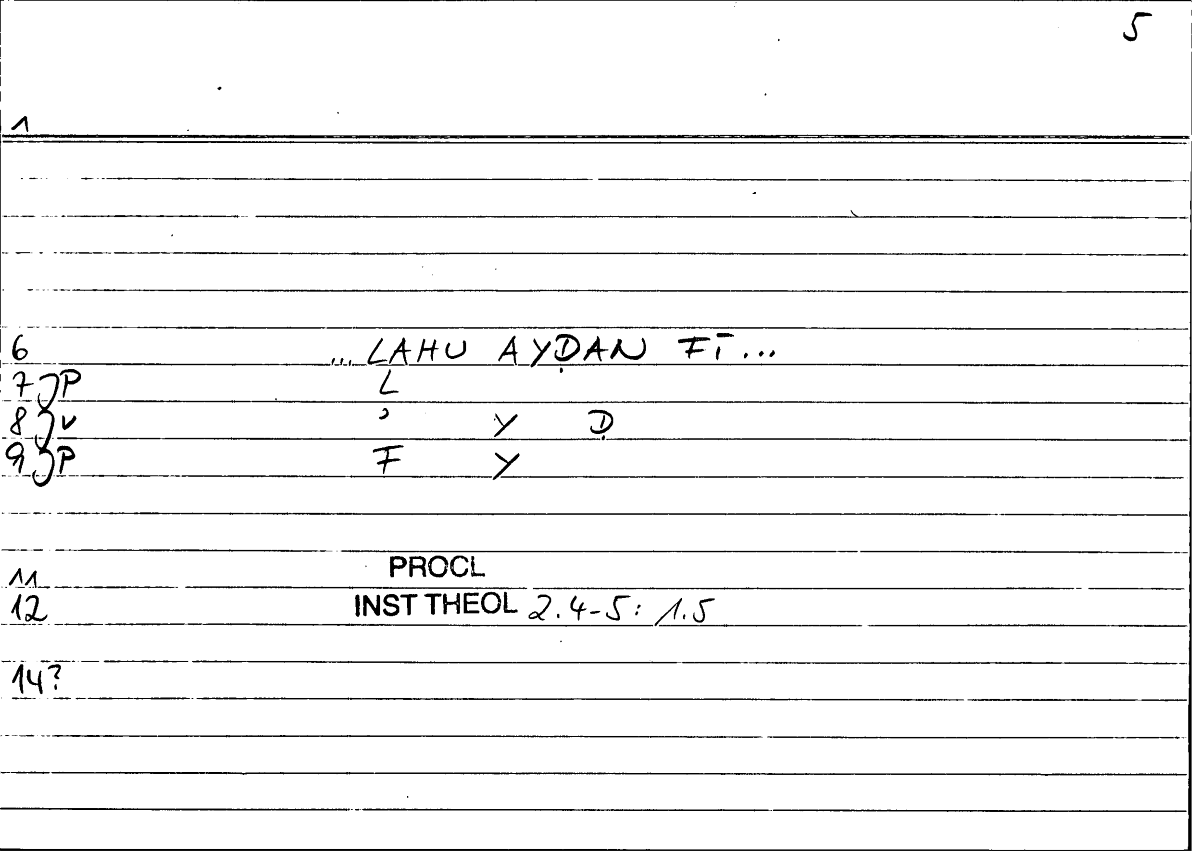 5
1
6 ... LAHU AYḌAN FĪ...
7 JP L
8 JV ʾ Y Ḍ
9 JP F Y
11 PROCL
12 INST THEOL 2.4-5: 1.5
14?